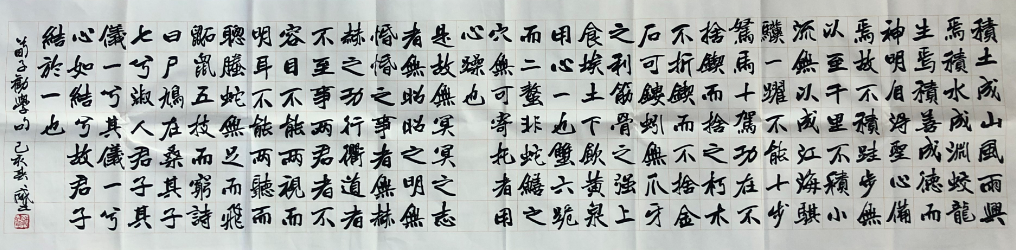 積土成山風雨興
焉積水成淵蛟龍
生焉積善成德而
神明自淂聖心備
焉故不積跬步無
以至千里不積小
流無以成江海騏
驥一躍不能十步
駑馬十駕功在不
捨鍥而捨之朽木
不折鍥而不捨金
石可鏤蚓無爪牙
之利筋骨之强上
食埃土下飲黃泉
用心一也蟹六跪
而二螯非蛇鱔之
穴無可寄托者用
心躁也
是故無冥冥之志
者無昭昭之明無
惛惛之事者無赫
赫之功行衢道者
不至事两君者不
容目不能两視而
明耳不能两聽而
聰螣蛇無足而飛
鼫鼠五技而窮詩
曰尸鳩在桑其子
七兮淑人君子其
儀一兮其儀一兮
心如結兮故君子
結於一也
荀子勸學句 己亥